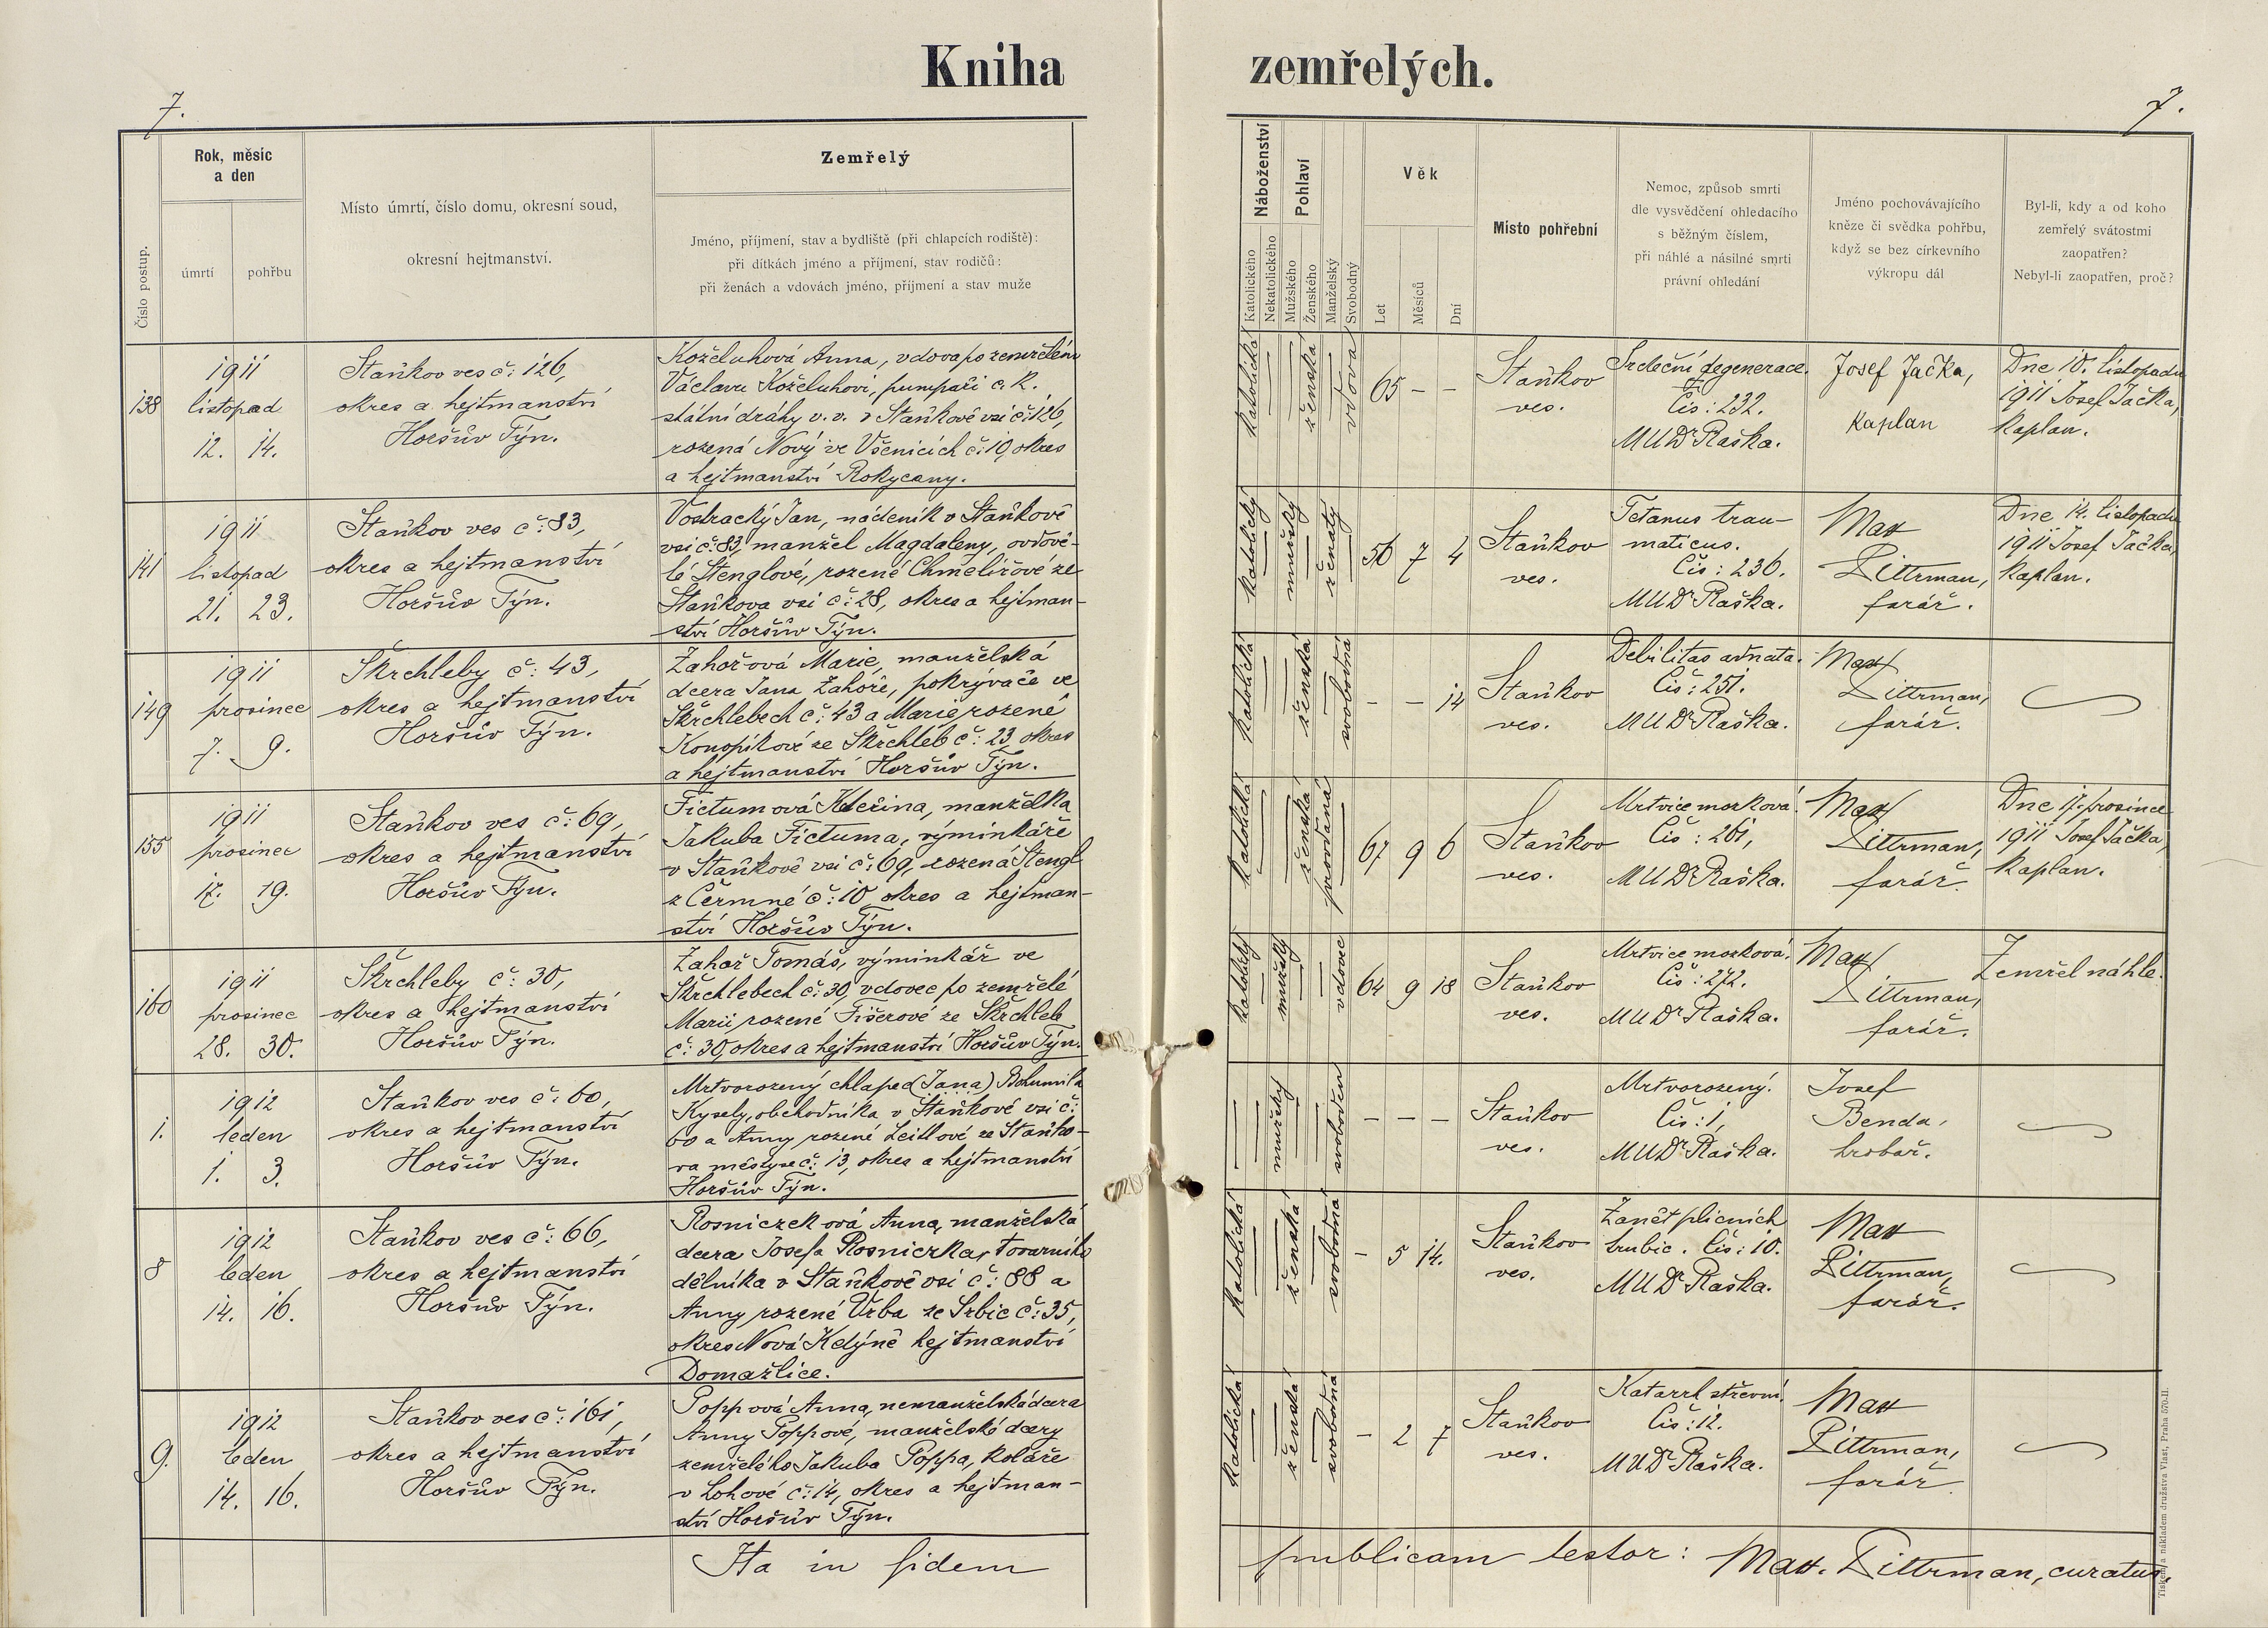 Kniha zemřelých.
7.
7.
Číslo postup.
Rok, měsíc
a den
úmrtí
pohřbu
Místo úmrtí, číslo domu, okresní soud,
okresní hejtmanství.
Zemřelý
Jméno, příjmení, stav a bydliště (při chlapcích rodiště):
při dítkách jméno a příjmení, stav rodičů:
při ženách a vdovách jméno, příjmení a stav muže
Náboženství
Katolického
Nekatolického
Pohlaví
Mužského
Ženského
Manželský
Svobodný
Věk
Let
Měsíců
Dní
Místo pohřební
Nemoc, způsob smrti
dle vysvědčení ohledacího
s běžným číslem,
při náhlé a násilné smrti
právní ohledání
Jméno pochovávajícího
kněze či svědka pohřbu,
když se bez církevního
výkropu dál
Byl-li, kdy a od koho
zemřelý svátostmi
zaopatřen?
Nebyl-li zaopatřen, proč?
138
1911
listopad
12. 14.
Staňkov ves č: 126,
okres a hejtmanství
Horšův Týn.
Koželuhová Anna, vdova po zemřelém
Václavu Koželuhovi, pumpaři c. k.
státní dráhy v. v. v Staňkově vsi č: 126,
rozená Nový ve Všenicích č: 10, okres
a hejtmanství Rokycany.
katolická
ženská
vdova
65 - -
Staňkov
ves.
Srdeční degenerace.
Čís: 232.
MUDr Raška.
Josef Jačka,
kaplan
Dne 10. listopadu
1911 Josef Jačka,
kaplan.
141
1911
listopad
21. 23.
Staňkov ves č: 83,
okres a hejtmanství
Horšův Týn.
Vostracký Jan, nádeník v Staňkově
vsi č: 83, manžel Magdaleny, ovdově-
lé Stenglové, rozené Chmelířové ze
Staňkova vsi č: 28, okres a hejtman-
ství Horšův Týn.
katolický
mužský
ženatý
56 7 4
Staňkov
ves.
Tetanus trau-
maticus.
Čís: 236.
MUDr Raška.
Max
Dittrman,
farář.
Dne 14. listopadu
1911 Josef Jačka,
kaplan.
149
1911
prosinec
7. 9.
Škrchleby č: 43,
okres a hejtmanství
Horšův Týn.
Zahořová Marie, manželská
dcera Jana Zahoře, pokrývače ve
Škrchlebech č: 43 a Marie rozené
Konopíkové ze Škrchleb č: 23, okres
a hejtmanství Horšův Týn.
katolická
ženská
svobodná
- - 14
Staňkov
ves.
Debilitas adnata.
Čís: 251.
MUDr Raška.
Max
Dittrman,
farář.
155
1911
prosinec
17. 19.
Staňkov ves č: 69,
okres a hejtmanství
Horšův Týn.
Fictumová Kateřina, manželka
Jakuba Fictuma, výminkáře
v Staňkově vsi č: 69, rozená Stengl
z Čermné č: 10 okres a hejtman-
ství Horšův Týn.
katolická
ženská
provdaná
67 9 6
Staňkov
ves.
Mrtvice mozková.
Čís: 261,
MUDr Raška.
Max
Dittrman,
farář.
Dne 17. prosince
1911 Josef Jačka,
kaplan.
160
1911
prosinec
28. 30.
Škrchleby č: 30,
okres a hejtmanství
Horšův Týn.
Zahoř Tomáš, výminkář ve
Škrchlebech č: 30, vdovec po zemřelé
Marii rozené Fišerové ze Škrchleb
č: 30, okres a hejtmanství Horšův Týn.
katolický
mužský
vdovec
64 9 18
Staňkov
ves.
Mrtvice mozková.
Čís: 272.
MUDr Raška.
Max
Dittrman,
farář.
Zemřel náhle.
1.
1912
leden
1. 3.
Staňkov ves č: 60,
okres a hejtmanství
Horšův Týn.
Mrtvorozený chlapec (Jana) Bohumila
Kysely, obchodníka v Staňkově vsi č:
60 a Anny rozené Leitlové ze Staňko-
va městyse č: 13, okres a hejtmanství
Horšův Týn.
mužský
svoboden
- - -
Staňkov
ves.
Mrtvorozený.
Čís: 1,
MUDr Raška.
Josef
Benda,
hrobař.
8
1912
leden
14. 16.
Staňkov ves č: 66,
okres a hejtmanství
Horšův Týn.
Rosniczková Anna, manželská
dcera Josefa Rosniczka, továrního
dělníka v Staňkově vsi č: 88 a
Anny rozené Vrba ze Srbic č: 35,
okres Nová Kdýně hejtmanství
Domažlice.
katolická
ženská
svobodná
- 5 14.
Staňkov
ves.
Zánět plicních
trubic. Čís: 10.
MUDr Raška.
Max
Dittrman,
farář.
9.
1912
leden
14. 16.
Staňkov ves č: 161,
okres a hejtmanství
Horšův Týn.
Poppová Anna, nemanželská dcera
Anny Poppové, manželské dcery
zemřelého Jakuba Poppa, koláře
v Lohové č: 14, okres a hejtman-
ství Horšův Týn.
katolická
ženská
svobodná
- 2 7
Staňkov
ves.
Katarrh střevní.
Čís: 12.
MUDr Raška.
Max
Dittrman,
farář.
Ita in fidem publicam testor: Max. Dittrman, curatus.
Tiskem a nákladem družstva Vlast, Praha 570-II.